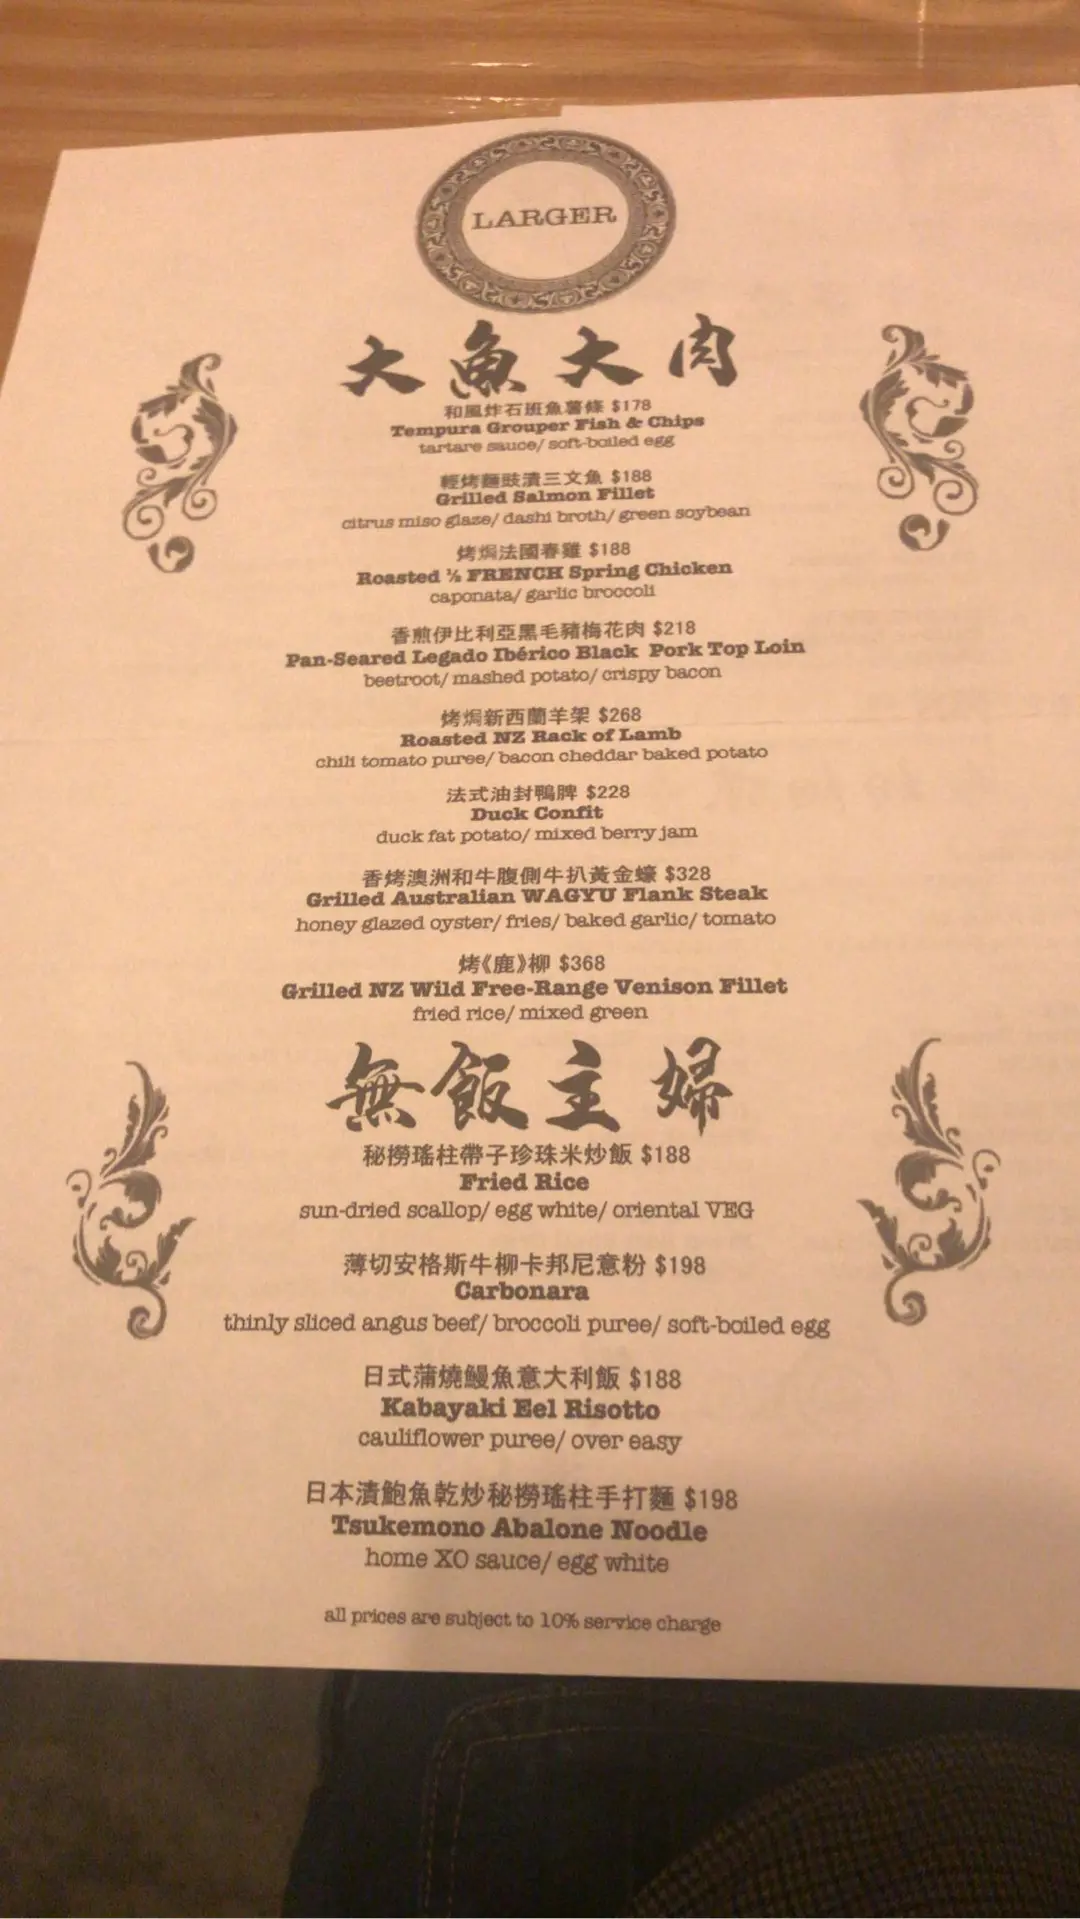 LARGER
大魚大肉
和風炸石班魚薯條 $178
Tempura Grouper Fish & Chips
tartare sauce/ soft-boiled egg
輕烤麵豉漬三文魚 $188
Grilled Salmon Fillet
citrus miso glaze/ dashi broth/ green soybean
烤焗法國春雞 $188
Roasted ½ FRENCH Spring Chicken
caponata/ garlic broccoli
香煎伊比利亞黑毛豬梅花肉 $218
Pan-Seared Legado Ibérico Black Pork Top Loin
beetroot/ mashed potato/ crispy bacon
烤焗新西蘭羊架 $268
Roasted NZ Rack of Lamb
chili tomato puree/ bacon cheddar baked potato
法式油封鴨脾 $228
Duck Confit
duck fat potato/ mixed berry jam
香烤澳洲和牛腹側牛扒黃金蠔 $328
Grilled Australian WAGYU Flank Steak
honey glazed oyster/ fries/ baked garlic/ tomato
烤《鹿》柳 $368
Grilled NZ Wild Free-Range Venison Fillet
fried rice/ mixed green
無飯主婦
秘撈瑤柱帶子珍珠米炒飯 $188
Fried Rice
sun-dried scallop/ egg white/ oriental VEG
薄切安格斯牛柳卡邦尼意粉 $198
Carbonara
thinly sliced angus beef/ broccoli puree/ soft-boiled egg
日式蒲燒鰻魚意大利飯 $188
Kabayaki Eel Risotto
cauliflower puree/ over easy
日本漬鮑魚乾炒秘撈瑤柱手打麵 $198
Tsukemono Abalone Noodle
home XO sauce/ egg white
all prices are subject to 10% service charge